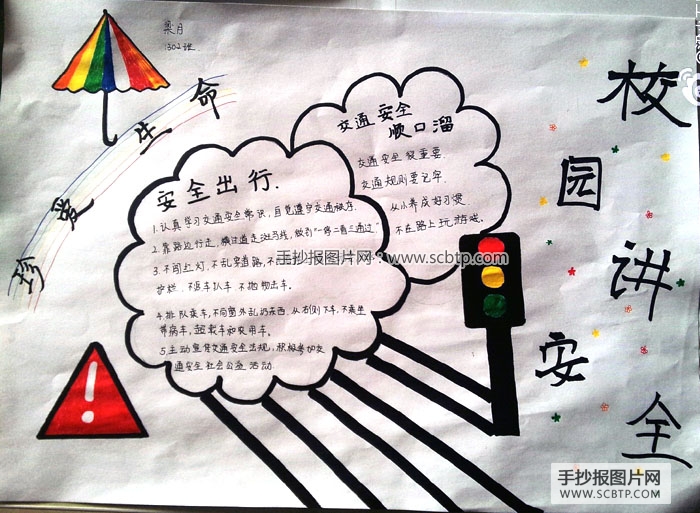 梁月
1302班
珍爱生命
校园讲安全
交通安全
顺口溜
交通安全很重要
交通规则要记牢
从小养成好习惯
不在路上玩游戏。
安全出行.
1.认真学习交通安全常识，自觉遵守交通秩序。
2.靠路边行走，横过道走斑马线，做到"一停二看三通过"
3.不闯红灯，不乱穿道路，不
护栏，不追车扒车 不抛物击车。
4.排队乘车，不向窗外乱扔东西，从右侧下车，不乘坐
带病车，超载车和农用车。
5.主动宣传交通安全法规，积极参加交
通安全社会公益活动.
手抄报图片网：www.scbtp.com
手抄报图片网
WWW.SCBTP.COM